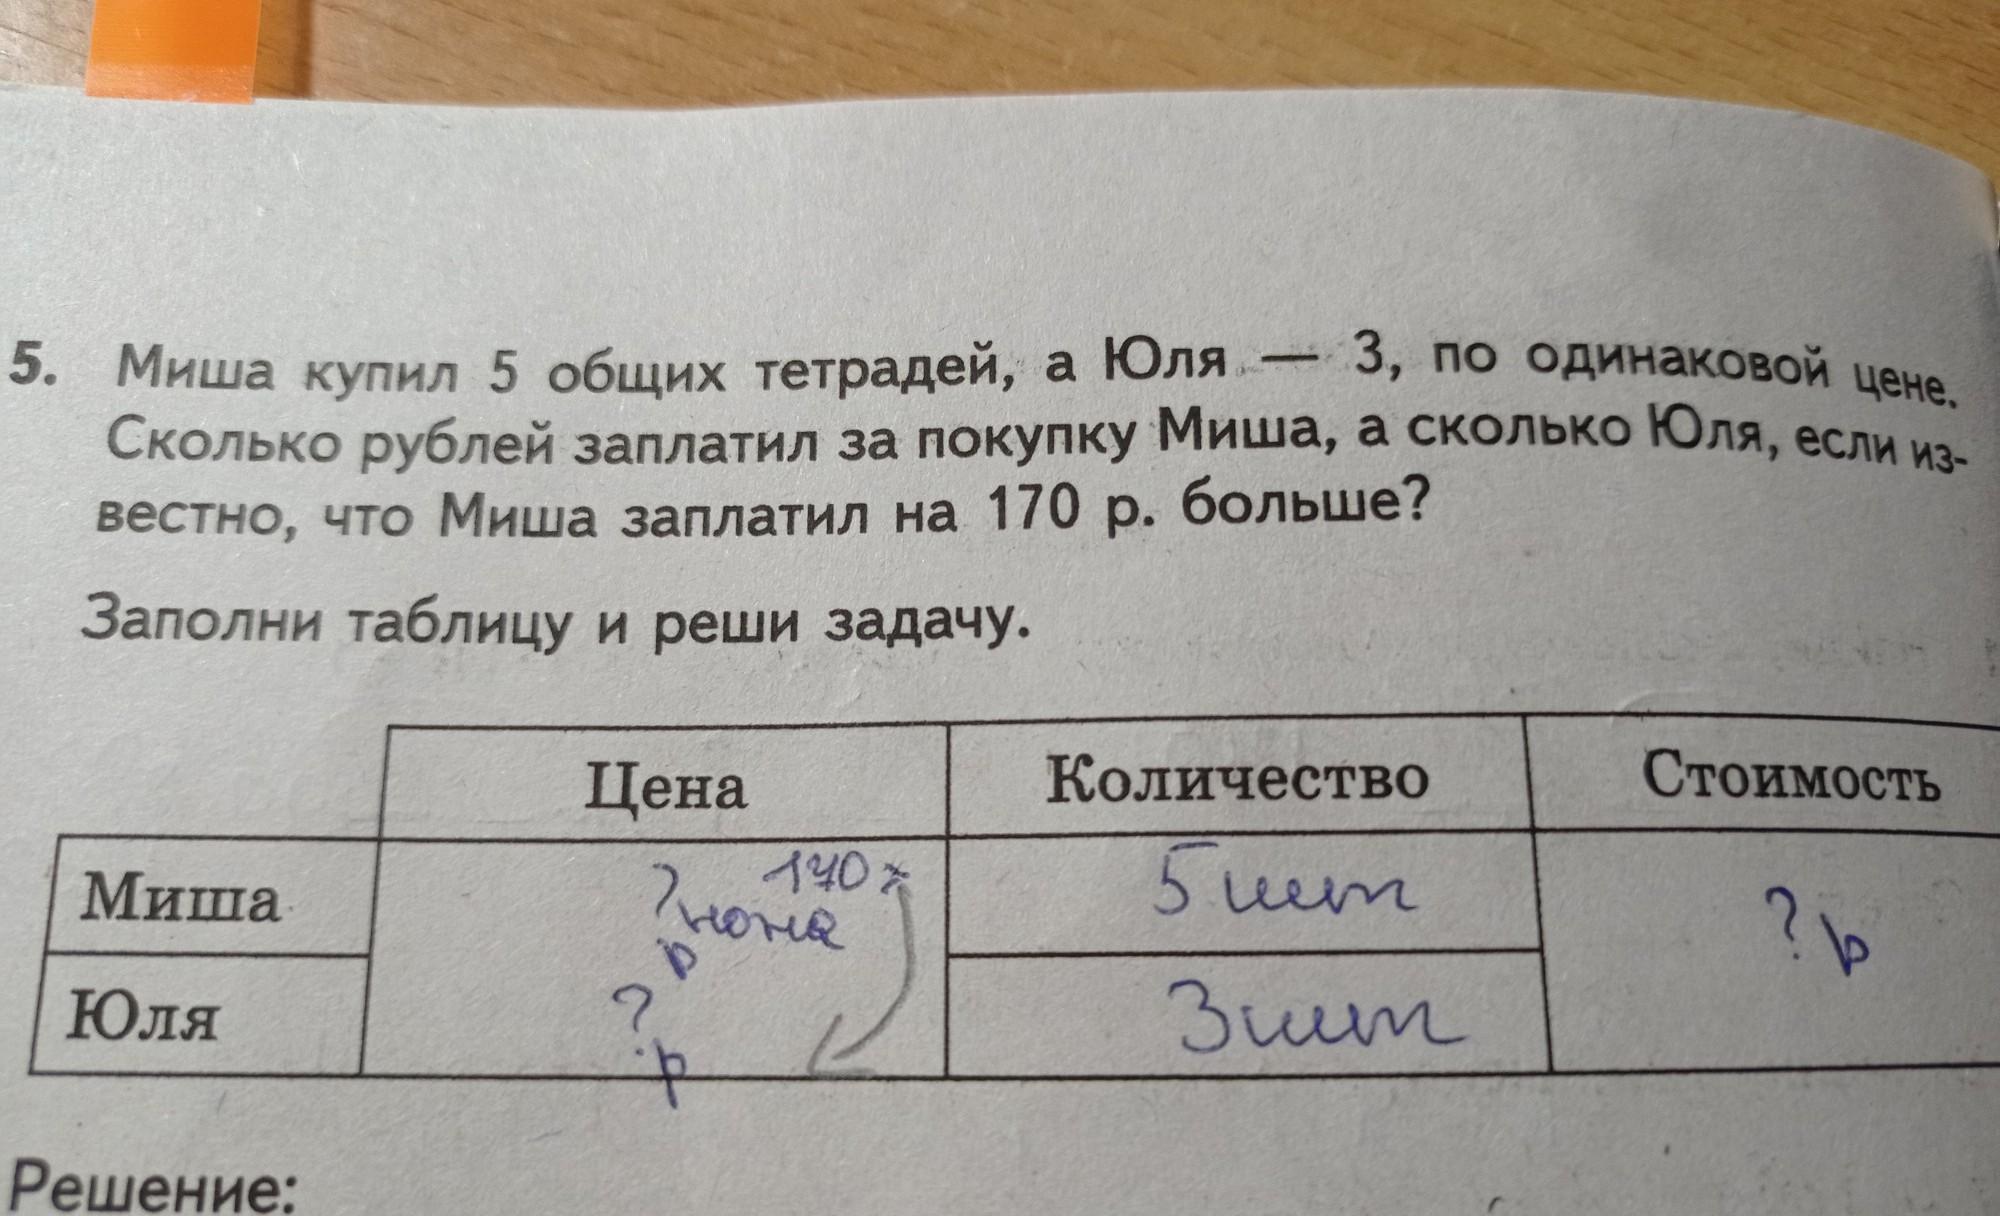 5. Миша купил 5 общих тетрадей, а Юля — 3, по одинаковой цене.
Сколько рублей заплатил за покупку Миша, а сколько Юля, если из-
вестно, что Миша заплатил на 170 р. больше?
Заполни таблицу и реши задачу.
Цена Количество Стоимость
Миша ? 170 5 шт ? р
р
Юля ? 3 шт
р
Решение: